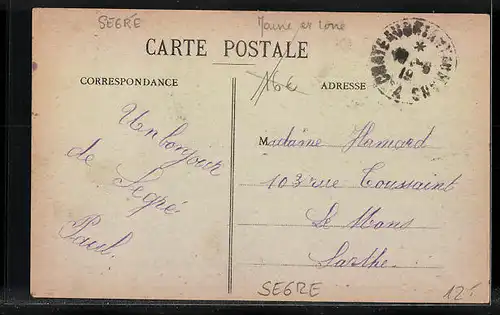 SEGRE
Maine et Loire
CARTE POSTALE
CORRESPONDANCE
ADRESSE
Un bonjour
de Segré
Paul.
Madame Hamard
103 rue Toussaint
Le Mans
Sarthe.
SEGRE
12